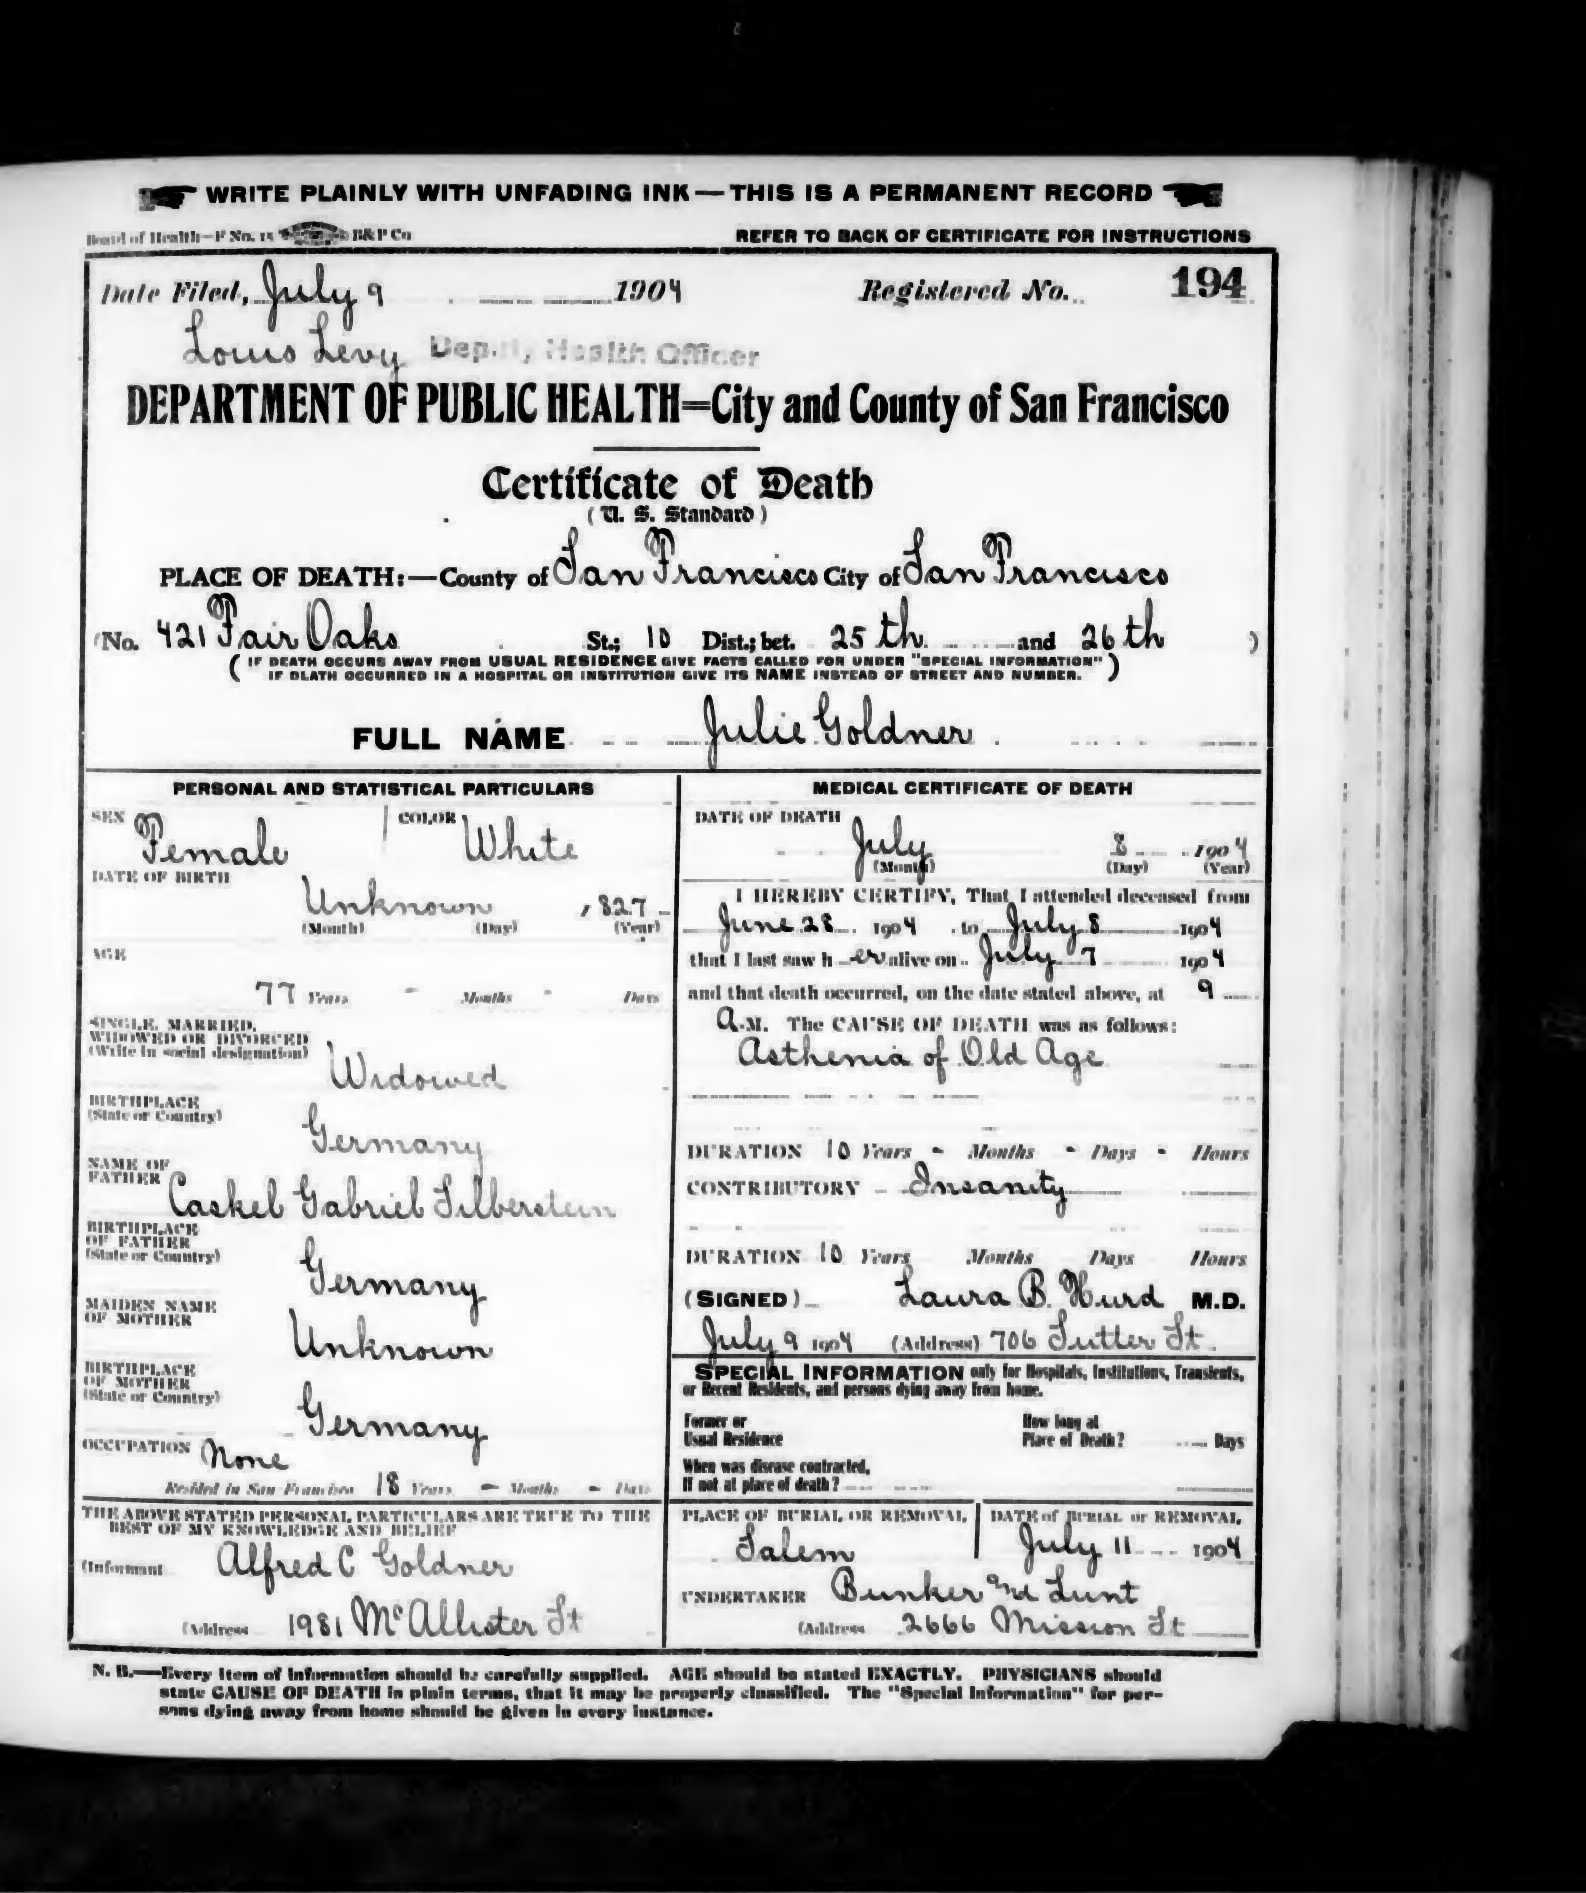 WRITE PLAINLY WITH UNFADING INK — THIS IS A PERMANENT RECORD
Board of Health—F No. 15 B&P Co
REFER TO BACK OF CERTIFICATE FOR INSTRUCTIONS
Date Filed, July 9 1904 Registered No. 194
Louis Levy Deputy Health Officer
DEPARTMENT OF PUBLIC HEALTH=City and County of San Francisco
Certificate of Death
(U. S. Standard)
PLACE OF DEATH:—County of San Francisco City of San Francisco
(No. 421 Fair Oaks St.; 10 Dist.; bet. 25th and 26th )
( IF DEATH OCCURS AWAY FROM USUAL RESIDENCE GIVE FACTS CALLED FOR UNDER "SPECIAL INFORMATION"
IF DEATH OCCURRED IN A HOSPITAL OR INSTITUTION GIVE ITS NAME INSTEAD OF STREET AND NUMBER. )
FULL NAME Julie Goldner
PERSONAL AND STATISTICAL PARTICULARS
SEX Female COLOR White
DATE OF BIRTH
Unknown , 1827
(Month) (Day) (Year)
AGE
77 Years - Months - Days
SINGLE, MARRIED,
WIDOWED OR DIVORCED
(Write in social designation)
Widowed
BIRTHPLACE
(State or Country)
Germany
NAME OF
FATHER Caskel Gabriel Silberstein
BIRTHPLACE
OF FATHER
(State or Country)
Germany
MAIDEN NAME
OF MOTHER
Unknown
BIRTHPLACE
OF MOTHER
(State or Country)
Germany
OCCUPATION None
Resided in San Francisco 18 Years - Months - Days
THE ABOVE STATED PERSONAL PARTICULARS ARE TRUE TO THE
BEST OF MY KNOWLEDGE AND BELIEF
(Informant Alfred C Goldner
(Address 1981 McAllister St
MEDICAL CERTIFICATE OF DEATH
DATE OF DEATH
July 8 1904
(Month) (Day) (Year)
I HEREBY CERTIFY, That I attended deceased from
June 28 1904 to July 8 1904
that I last saw her alive on July 7 1904
and that death occurred, on the date stated above, at 9
A.M. The CAUSE OF DEATH was as follows:
Asthenia of Old Age
DURATION 10 Years - Months - Days - Hours
CONTRIBUTORY Insanity
DURATION 10 Years Months Days Hours
(SIGNED) Laura B. Hurd M.D.
July 9 1904 (Address) 706 Sutter St.
SPECIAL INFORMATION only for Hospitals, Institutions, Transients,
or Recent Residents, and persons dying away from home.
Former or
Usual Residence
How long at
Place of Death? Days
When was disease contracted,
If not at place of death?
PLACE OF BURIAL OR REMOVAL DATE of BURIAL or REMOVAL
Salem July 11 1904
UNDERTAKER Bunker and Lunt
(Address 2666 Mission St
N. B.—Every item of information should be carefully supplied. AGE should be stated EXACTLY. PHYSICIANS should
state CAUSE OF DEATH in plain terms, that it may be properly classified. The "Special Information" for per-
sons dying away from home should be given in every instance.